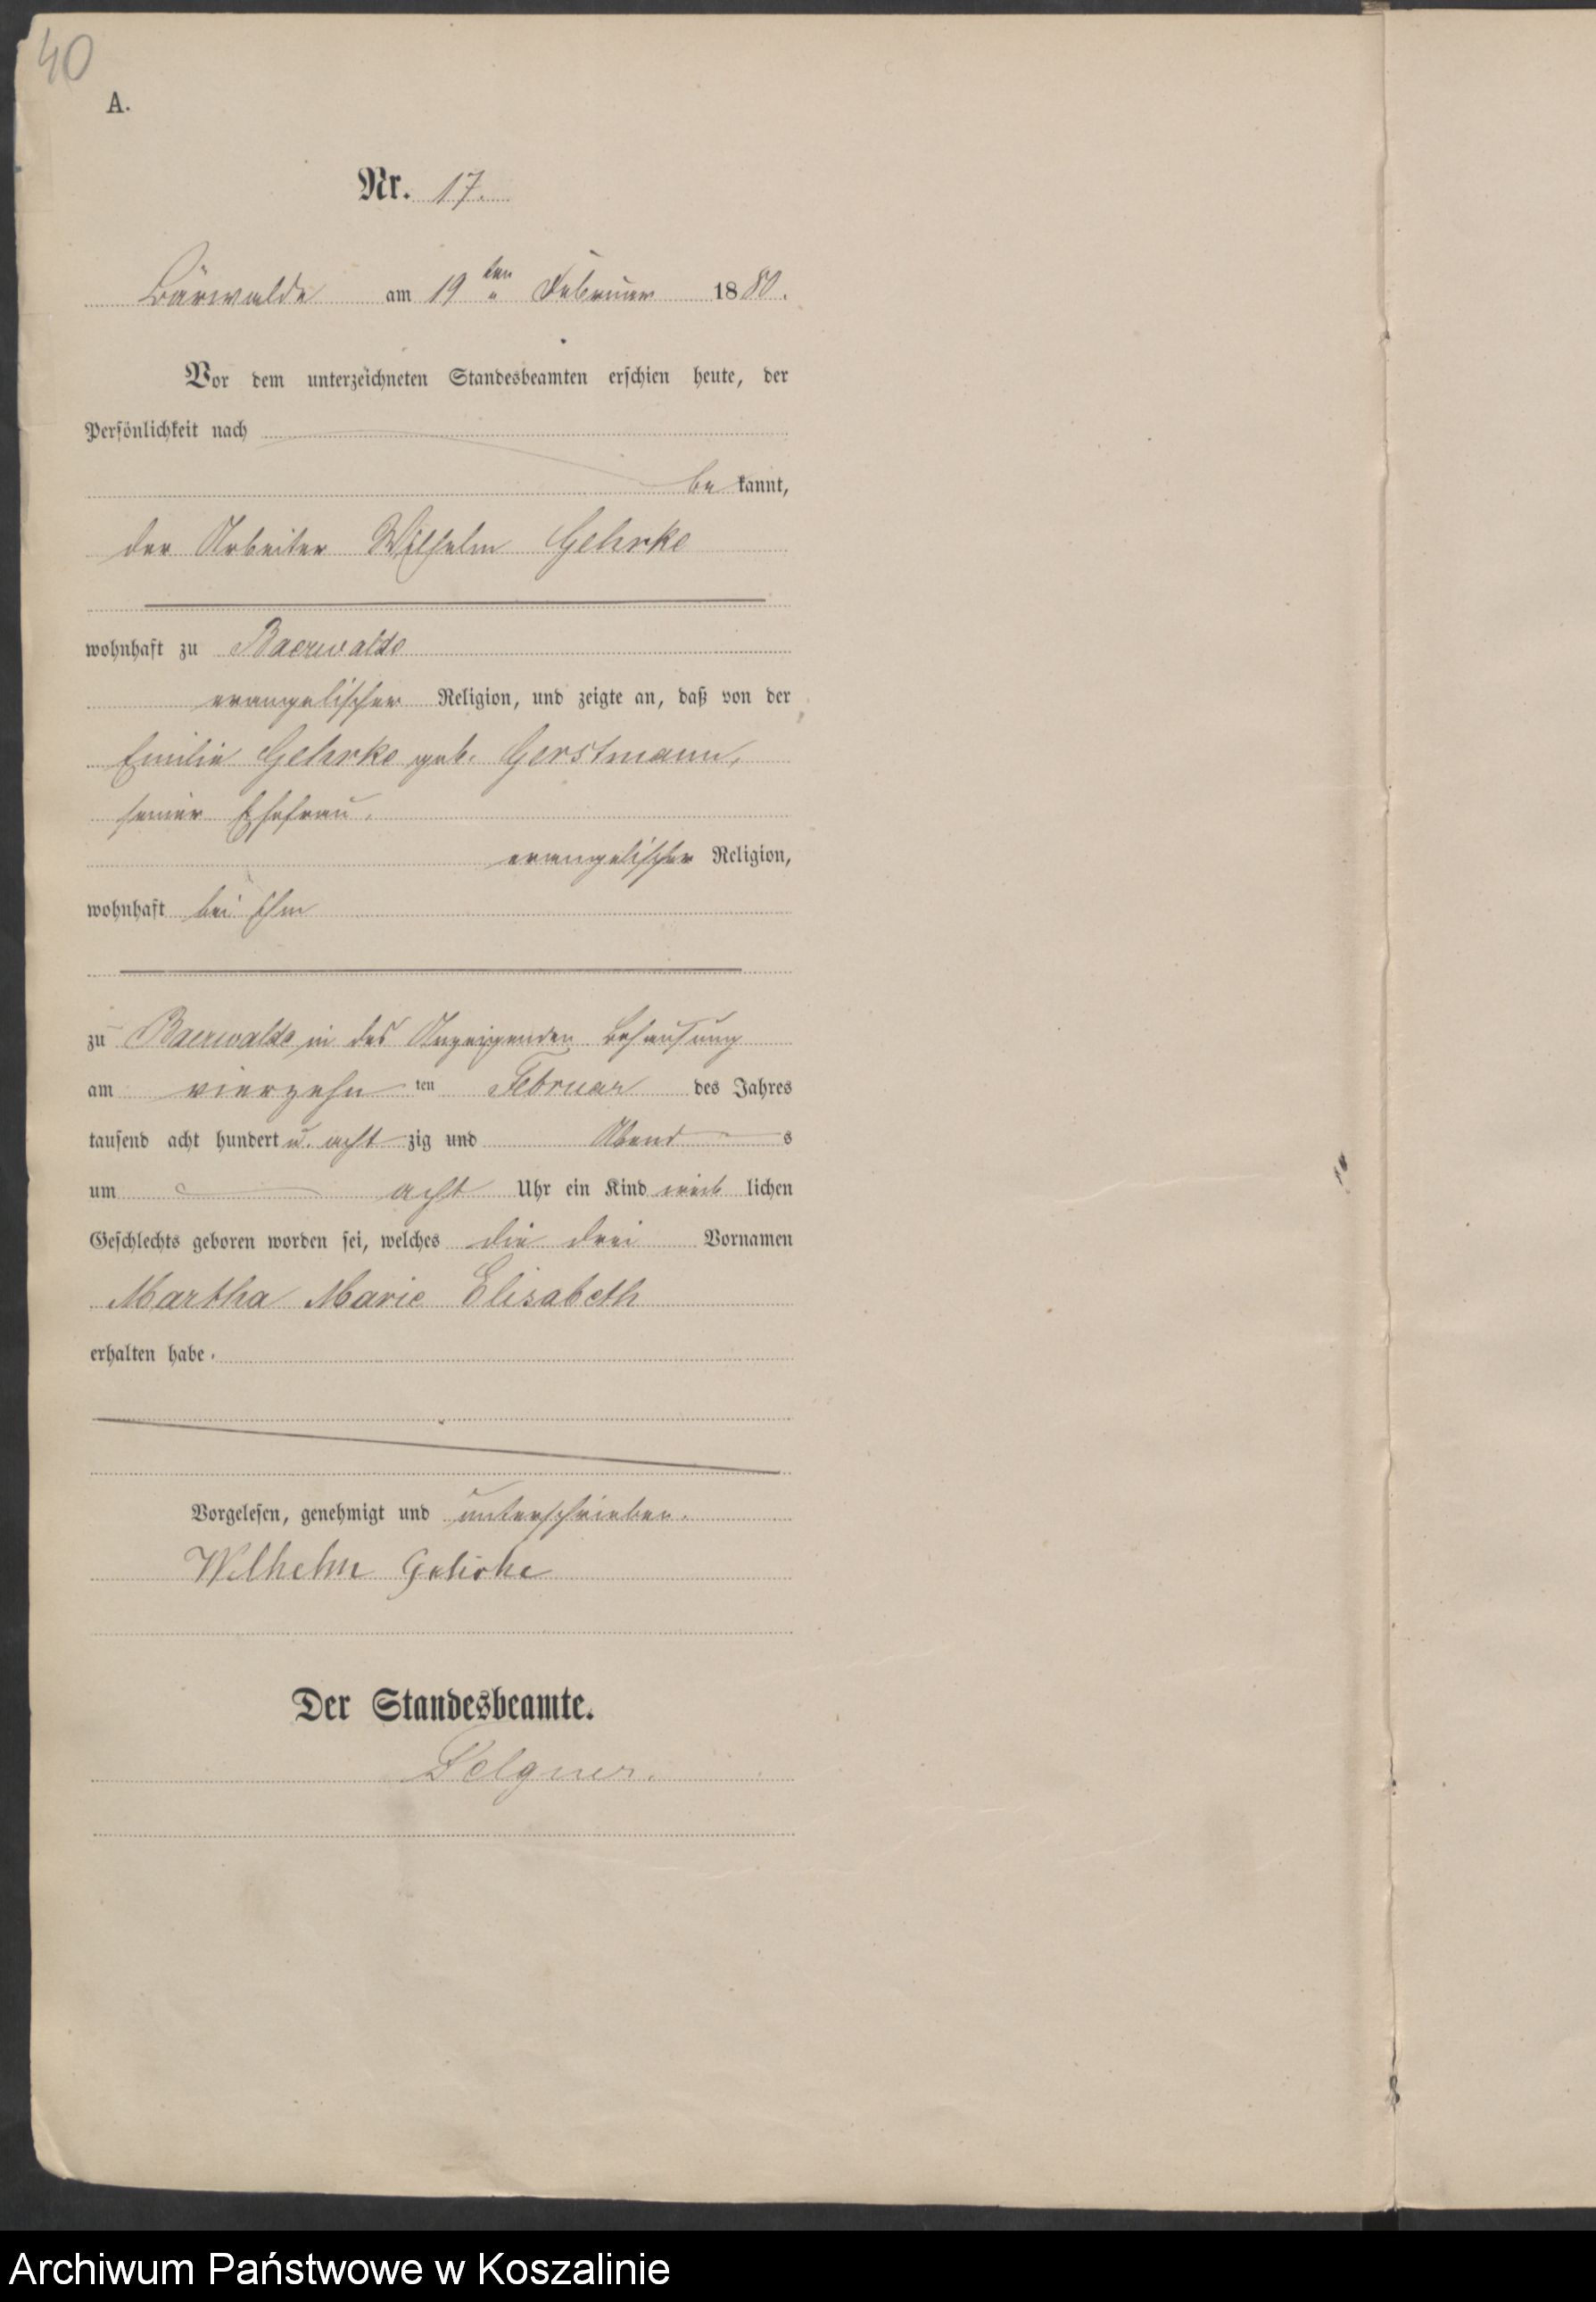 40
A.
Nr. 17.
Bärwalde am 19ten Februar 1880.
Vor dem unterzeichneten Standesbeamten erschien heute, der
Persönlichkeit nach
be kannt,
der Arbeiter Wilhelm Gehrke
wohnhaft zu Baerwalde
evangelischer Religion, und zeigte an, daß von der
Emilie Gehrke geb. Gerstmann,
seiner Ehefrau,
evangelischer Religion,
wohnhaft bei ihm
zu Baerwalde in des Anzeigenden Behausung
am vierzehn ten Februar des Jahres
tausend acht hundert u. acht zig und Abend s
um acht Uhr ein Kind weib lichen
Geschlechts geboren worden sei, welches die drei Vornamen
Martha Marie Elisabeth
erhalten habe.
Vorgelesen, genehmigt und unterschrieben.
Wilhelm Gehrke
Der Standesbeamte.
Felgner.
Archiwum Państwowe w Koszalinie